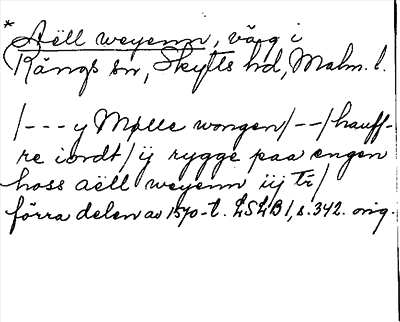 * Aëll weyenn, väg i
Rängs sn, Skytts hd, Malm. l.
/- - - y Mølle wongen/- -/hauff-
re iordt/ij rygge paa engen
hoss aëll weyenn iij tr/
förra delen av 1570-t. LSLB 1, s. 342. orig.